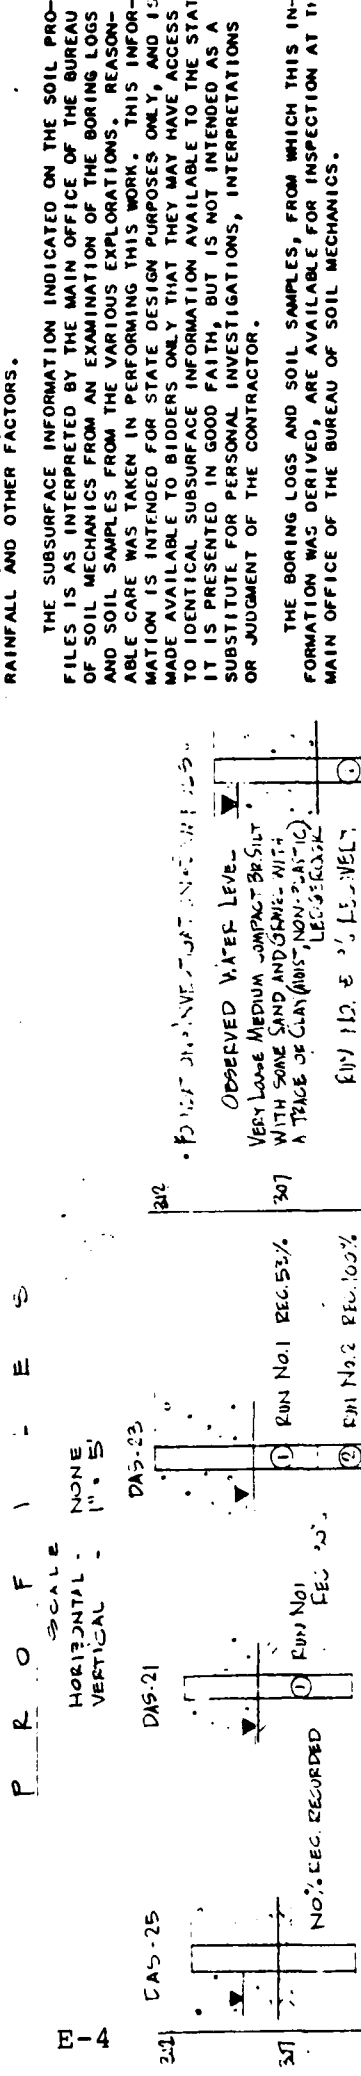 E-4
P R O F I L E S
SCALE
HORIZONTAL - NONE
VERTICAL - 1" = 5'
DAS-25
DAS-21
DAS-23
312
307
NO % REC. RECORDED
① RUN NO1
REC
① RUN NO.1 REC. 53%
② RUN NO.2 REC. 100%
312
307
OBSERVED WATER LEVEL
VERY LOOSE MEDIUM COMPACT BR SILT
WITH SOME SAND AND GRAVEL WITH
A TRACE OF CLAY (MOIST, NON-PLASTIC)
LEDGEROCK
RUN NO. & %
RAINFALL AND OTHER FACTORS.
THE SUBSURFACE INFORMATION INDICATED ON THE SOIL PRO-
FILES IS AS INTERPRETED BY THE MAIN OFFICE OF THE BUREAU
OF SOIL MECHANICS FROM AN EXAMINATION OF THE BORING LOGS
AND SOIL SAMPLES FROM THE VARIOUS EXPLORATIONS. REASON-
ABLE CARE WAS TAKEN IN PERFORMING THIS WORK. THIS INFOR-
MATION IS INTENDED FOR STATE DESIGN PURPOSES ONLY, AND IS
MADE AVAILABLE TO BIDDERS ONLY THAT THEY MAY HAVE ACCESS
TO IDENTICAL SUBSURFACE INFORMATION AVAILABLE TO THE STAT
IT IS PRESENTED IN GOOD FAITH, BUT IS NOT INTENDED AS A
SUBSTITUTE FOR PERSONAL INVESTIGATIONS, INTERPRETATIONS
OR JUDGMENT OF THE CONTRACTOR.
THE BORING LOGS AND SOIL SAMPLES, FROM WHICH THIS IN-
FORMATION WAS DERIVED, ARE AVAILABLE FOR INSPECTION AT TH
MAIN OFFICE OF THE BUREAU OF SOIL MECHANICS.